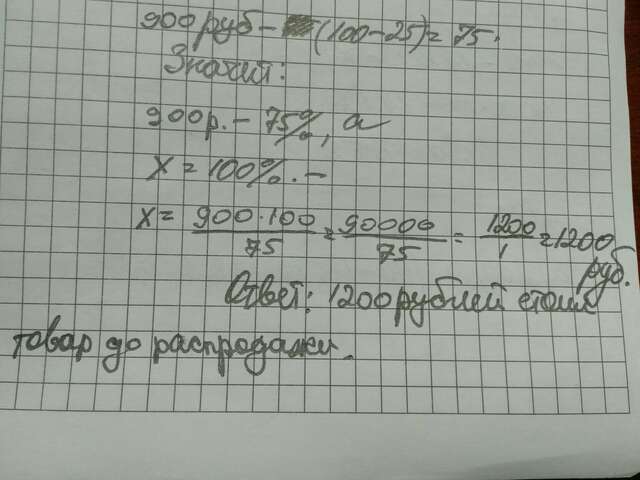 900 руб - (100-25)= 75.
Значит:
900р. - 75%, а
X = 100%. -
X = 900·100 / 75 = 90000 / 75 = 1200 / 1 = 1200 руб.
Ответ: 1200 рублей стоил
товар до распродажи.